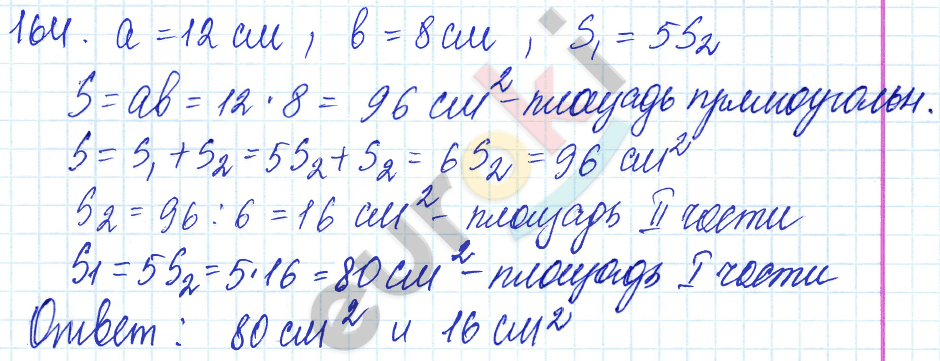 164. a = 12 см, в = 8 см, S₁ = 5S₂
S = ав = 12 · 8 = 96 см² - площадь прямоугольн.
S = S₁ + S₂ = 5S₂ + S₂ = 6S₂ = 96 см²
S₂ = 96 : 6 = 16 см² - площадь II части
S₁ = 5S₂ = 5·16 = 80 см² - площадь I части
Ответ: 80 см² и 16 см²
euroki